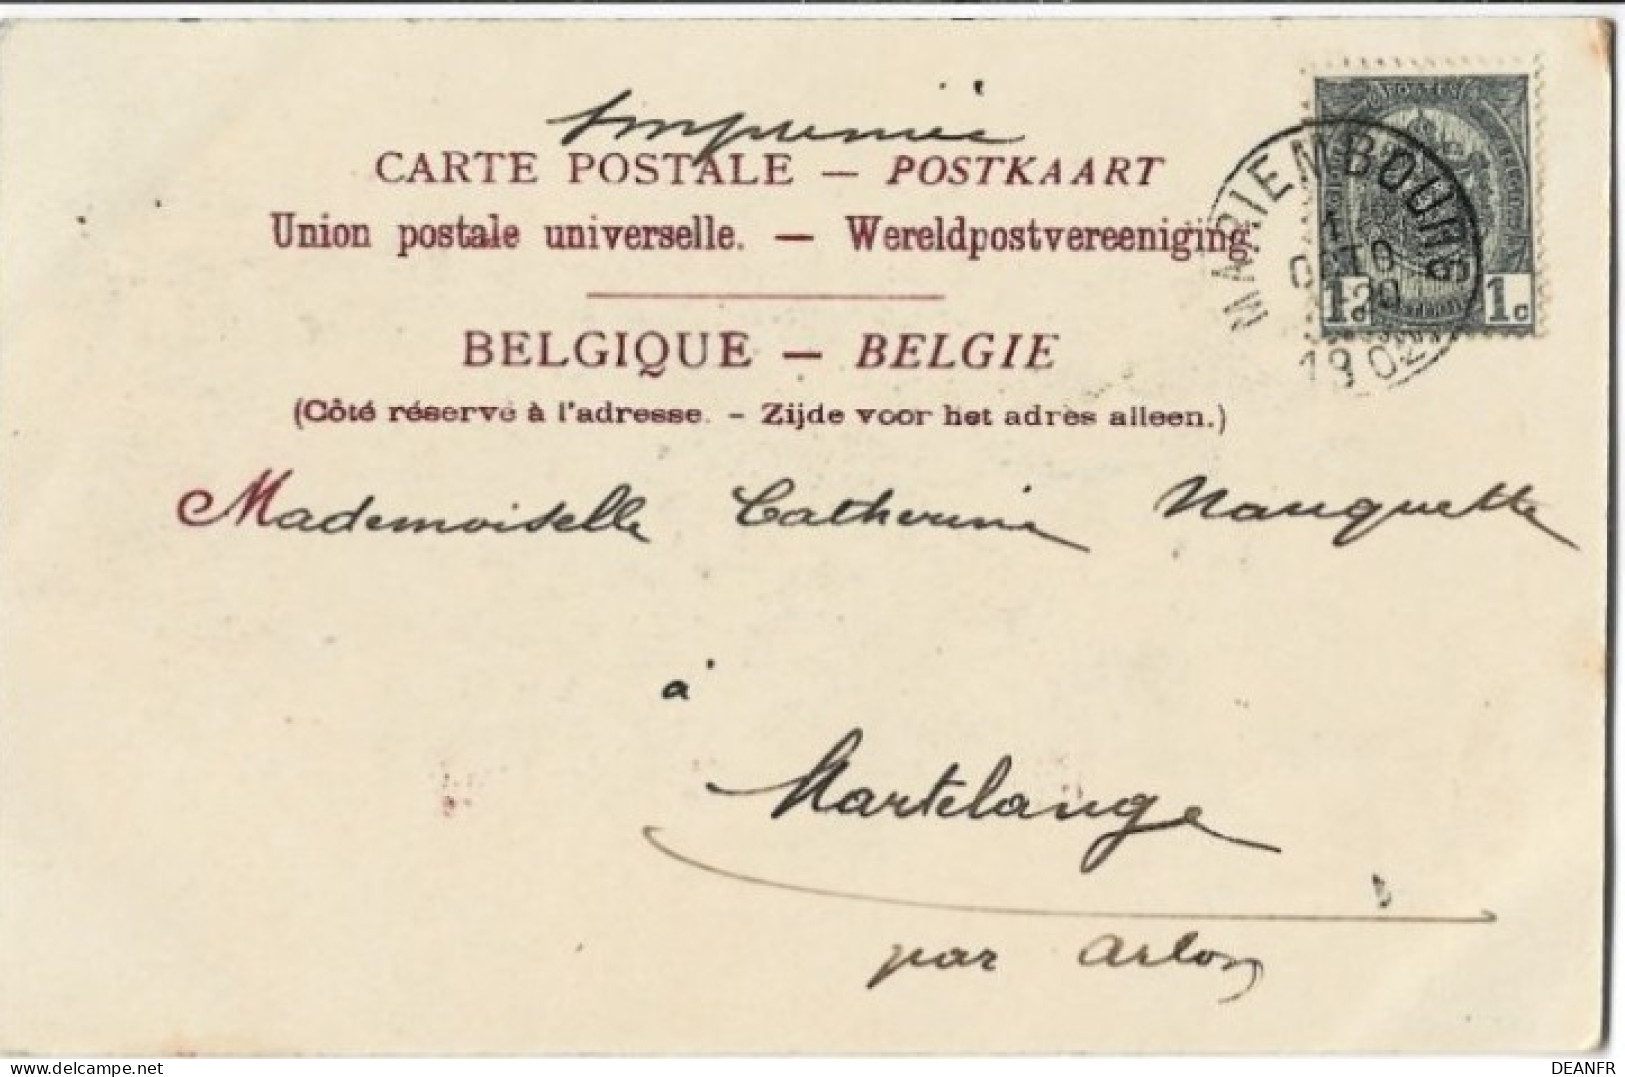 Imprimée
CARTE POSTALE — POSTKAART
Union postale universelle. — Wereldpostvereeniging.
BELGIQUE — BELGIE
(Côté réservé à l'adresse. - Zijde voor het adres alleen.)
POSTES
1c 1c
MARIEMBOURG
1902
Mademoiselle Catherine Nauquette
à
Martelange
par Arlon
delcampe.net
DEANFR